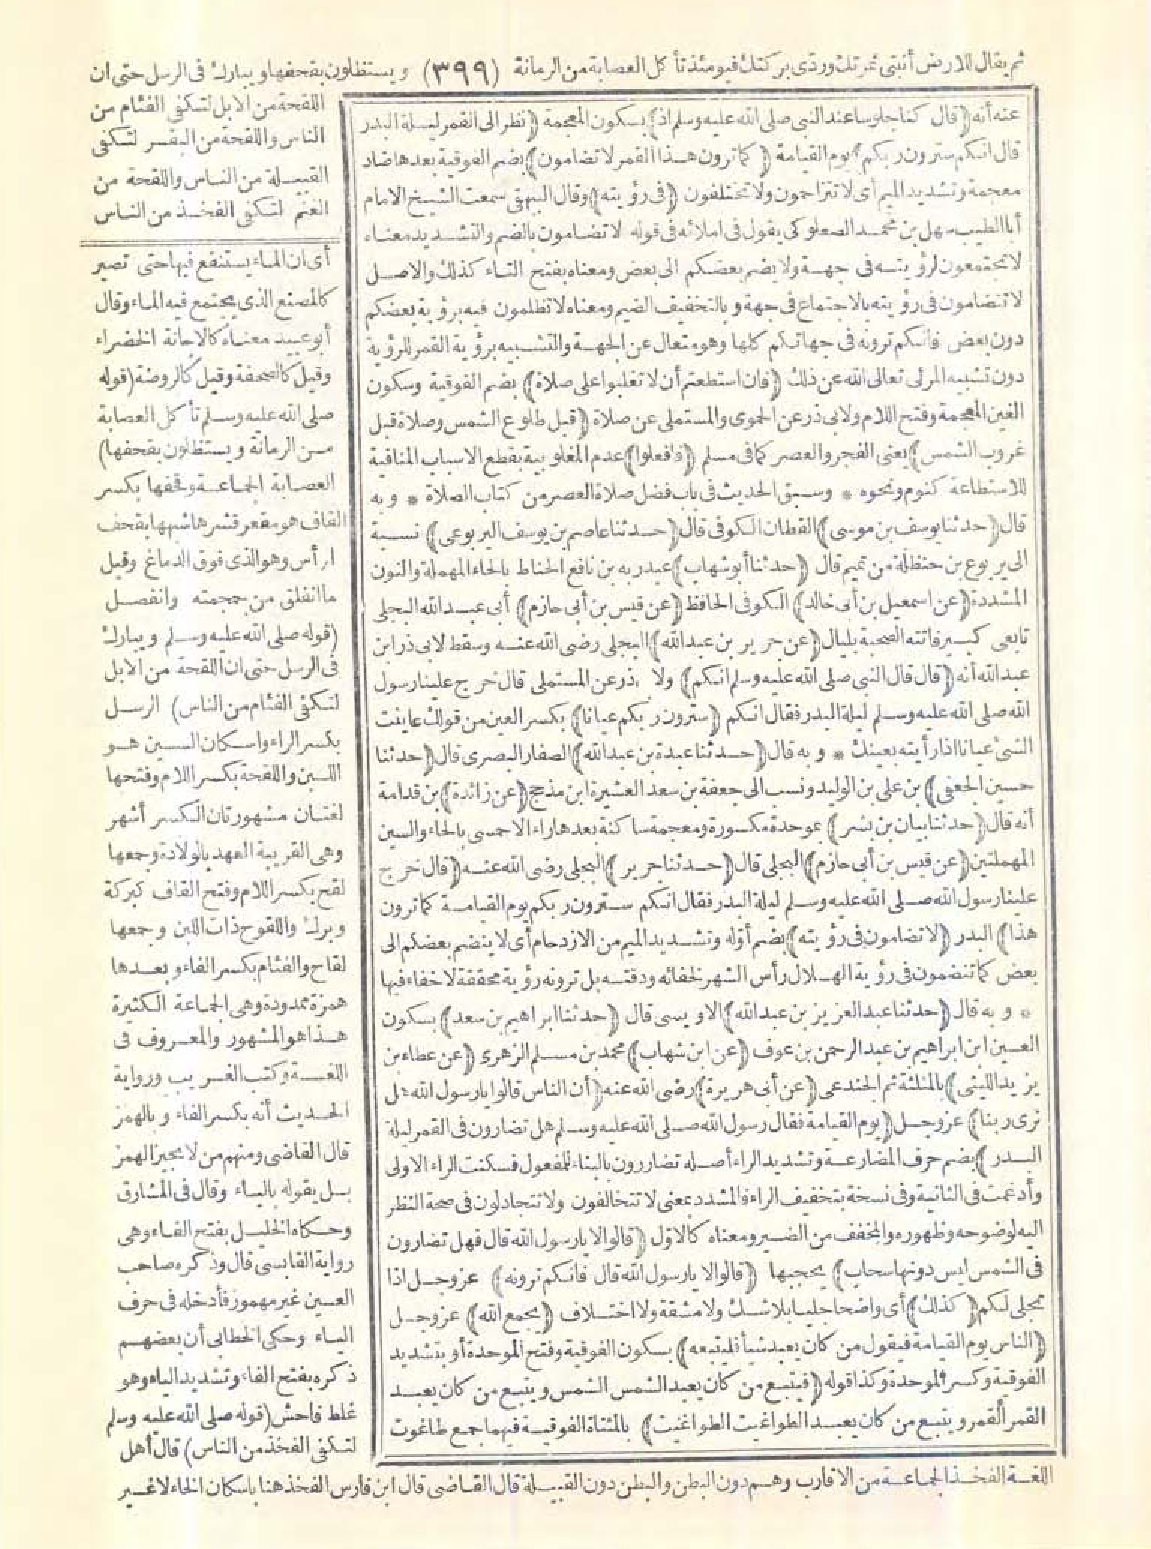 ثم يقال للارض أنبتى ثمرتك وردّى بركتك فيومئذ تأكل العصابة من الرمانة (٣٩٩) ويستظلون بقحفها ويبارك فى الرسل حتى ان
اللقحة من الابل لتكفى الفئام من
الناس واللقحة من البقر لتكفى
القبيلة من الناس واللقحة من
الغنم لتكفى الفخذ من الناس
عنه أنه (قال كنا جلوسا عند النبى صلى الله عليه وسلم اذ) بسكون المعجمة (نظر الى القمر ليلة البدر
قال انكم سترون ربكم) يوم القيامة (كما ترون هذا القمر لا تضامون) بضم الفوقية بعدها ضاد
معجمة وتشديد الميم أى لا تتزاحمون ولا تختلفون (فى رؤيته) وقال البيهقى سمعت الشيخ الامام
أبا الطيب سهل بن محمد الصعلوكى يقول فى املائه فى قوله لا تضامون بالضم والتشديد معناه
لا تجتمعون لرؤيته فى جهة ولا يضم بعضكم الى بعض ومعناه بفتح التاء كذلك والاصل
لا تتضامون فى رؤيته بالاجتماع فى جهة وبالتخفيف الضيم ومعناه لا تظلمون فيه برؤية بعضكم
دون بعض فانكم ترونه فى جهاتكم كلها وهو متعال عن الجهة والتشبيه برؤية القمر للرؤية
دون تشبيه المرئى تعالى الله عن ذلك (فان استطعتم أن لا تغلبوا على صلاة) بضم الفوقية وسكون
الغين المعجمة وفتح اللام ولابى ذر عن الحموى والمستملى عن صلاة (قبل طلوع الشمس وصلاة قبل
غروب الشمس) يعنى الفجر والعصر كما فى مسلم (فافعلوا) عدم المغلوبية بقطع الاسباب المنافية
للاستطاعة كنوم ونحوه * وسبق الحديث فى باب فضل صلاة العصر من كتاب الصلاة * وبه
قال (حدثنا يوسف بن موسى) القطان الكوفى قال (حدثنا عاصم بن يوسف اليربوعى) نسبة
الى يربوع بن حنظلة من تميم قال (حدثنا أبو شهاب) عبد ربه بن نافع الحناط بالحاء المهملة والنون
المشددة (عن اسمعيل بن أبى خالد) الكوفى الحافظ (عن قيس بن أبى حازم) أبى عبد الله البجلى
تابعى كبير فاتته الصحبة بليال (عن جرير بن عبد الله) البجلى رضى الله عنه وسقط لابى ذر ابن
عبد الله أنه (قال قال النبى صلى الله عليه وسلم انكم) ولا ذر عن المستملى قال خرج علينا رسول
الله صلى الله عليه وسلم ليلة البدر فقال انكم (سترون ربكم عيانا) بكسر العين من قولك عاينت
الشىء عيانا اذا رأيته بعينك * وبه قال (حدثنا عبدة بن عبد الله) الصفار البصرى قال (حدثنا
حسين الجعفى) بن على بن الوليد ونسب الى جعفة بن سعد العشيرة ابن مذحج (عن زائدة) بن قدامة
أنه قال (حدثنا بيان بن بشر) بموحدة مكسورة ومعجمة ساكنة بعدها راء الاحمسى بالحاء والسين
المهملتين (عن قيس بن أبى حازم) البجلى قال (حدثنا جرير) البجلى رضى الله عنه (قال خرج
علينا رسول الله صلى الله عليه وسلم ليلة البدر فقال انكم سترون ربكم يوم القيامة كما ترون
هذا) البدر (لا تضامون فى رؤيته) بضم أوّله وتشديد الميم من الازدحام أى لا ينضم بعضكم الى
بعض كما تنضمون فى رؤية الهلال رأس الشهر لخفائه ودقته بل ترونه رؤية محققة لا خفاء فيها
* وبه قال (حدثنا عبد العزيز بن عبد الله) الاويسى قال (حدثنا ابراهيم بن سعد) بسكون
العين ابن ابراهيم بن عبد الرحمن بن عوف (عن ابن شهاب) محمد بن مسلم الزهرى (عن عطاء بن
يزيد الليثى) بالمثلثة ثم الجندعى (عن أبى هريرة) رضى الله عنه (أن الناس قالوا يا رسول الله هل
نرى ربنا) عز وجل (يوم القيامة فقال رسول الله صلى الله عليه وسلم هل تضارون فى القمر ليلة
البدر) بضم حرف المضارعة وتشديد الراء أصله تضاررون بالبناء للمفعول فسكنت الراء الاولى
وأدغمت فى الثانية وفى نسخة بتخفيف الراء فالمشدد بمعنى لا تتخالفون ولا تتجادلون فى صحة النظر
اليه لوضوحه وظهوره والمخفف من الضير ومعناه كالاوّل (قالوا لا يا رسول الله قال فهل تضارون
فى الشمس ليس دونها سحاب) يحجبها (قالوا لا يا رسول الله قال فانكم ترونه) عز وجل اذا
تجلى لكم (كذلك) أى واضحا جليا بلا شك ولا مشقة ولا اختلاف (يجمع الله) عز وجل
(الناس يوم القيامة فيقول من كان يعبد شيأ فليتبعه) بسكون الفوقية وفتح الموحدة أو بتشديد
الفوقية وكسر الموحدة وكذا قوله (فيتبع من كان يعبد الشمس الشمس ويتبع من كان يعبد
القمر القمر ويتبع من كان يعبد الطواغيت الطواغيت) بالمثناة الفوقية فيهما جمع طاغوت
أى ان الماء يستنقع فيها حتى تصير
كالمصنع الذى يجتمع فيه الماء وقال
أبو عبيد معناه كالاجانة الخضراء
وقيل كالصحفة وقيل كالروضة (قوله
صلى الله عليه وسلم تأكل العصابة
من الرمانة ويستظلون بقحفها)
العصابة الجماعة وقحفها بكسر
القاف هو مقعر قشرها شبهها بقحف
الرأس وهو الذى فوق الدماغ وقيل
ما انفلق من جمجمته وانفصل
(قوله صلى الله عليه وسلم ويبارك
فى الرسل حتى ان اللقحة من الابل
لتكفى الفئام من الناس) الرسل
بكسر الراء واسكان السين هو
اللبن واللقحة بكسر اللام وفتحها
لغتان مشهورتان الكسر أشهر
وهى القريبة العهد بالولادة وجمعها
لقح بكسر اللام وفتح القاف كبركة
وبرك واللقوح ذات اللبن وجمعها
لقاح والفئام بكسر الفاء وبعدها
همزة ممدودة وهى الجماعة الكثيرة
هذا هو المشهور والمعروف فى
اللغة وكتب الغريب ورواية
الحديث أنه بكسر الفاء وبالهمز
قال القاضى ومنهم من لا يجيز الهمز
بل يقوله بالياء وقال فى المشارق
وحكاه الخليل بفتح الفاء وهى
رواية القابسى قال وذكره صاحب
العين غير مهموز فأدخله فى حرف
الياء وحكى الخطابى أن بعضهم
ذكره بفتح الفاء وتشديد الياء وهو
غلط فاحش (قوله صلى الله عليه وسلم
لتكفى الفخذ من الناس) قال أهل
اللغة الفخذ الجماعة من الاقارب وهم دون البطن والبطن دون القبيلة قال القاضى قال ابن فارس الفخذ هنا باسكان الخاء لا غير